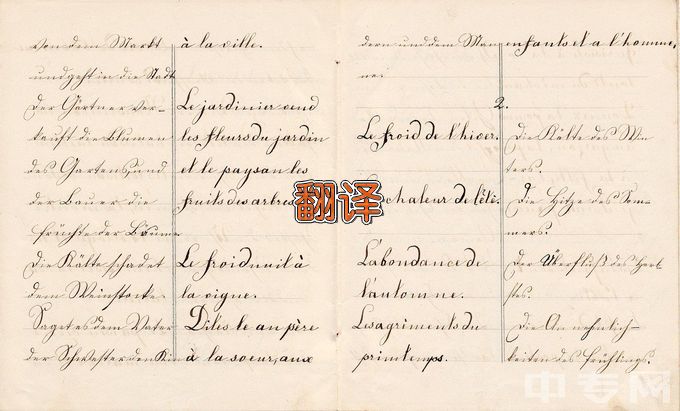 von dem Markt
und geht in die Stadt
Der Gärtner ver-
kauft die Blumen
des Gartens, und
der Bauer die
Früchte der Bäume.
Die Kälte schadet
dem Weinstocke.
Saget es dem Vater
der Schwester den Kin
à la ville.
Le jardinier vend
les fleurs du jardin
et le paysan les
fruits des arbres
Le froid nuit à
la vigne.
Dites le au père
à la soeur, aux
翻译
dern und dem Man
ne.
enfants et a l'homme,
2.
Le froid de l'hiver.
chaleur de l'été.
L'abondance de
l'automne.
Les agriments du
printemps.
Die Kälte des Win
ters.
Die Hitze des Som-
mers.
Der Überfluß des Herb
stes.
Die Annehmlich-
keiten des Frühlings.
中专网